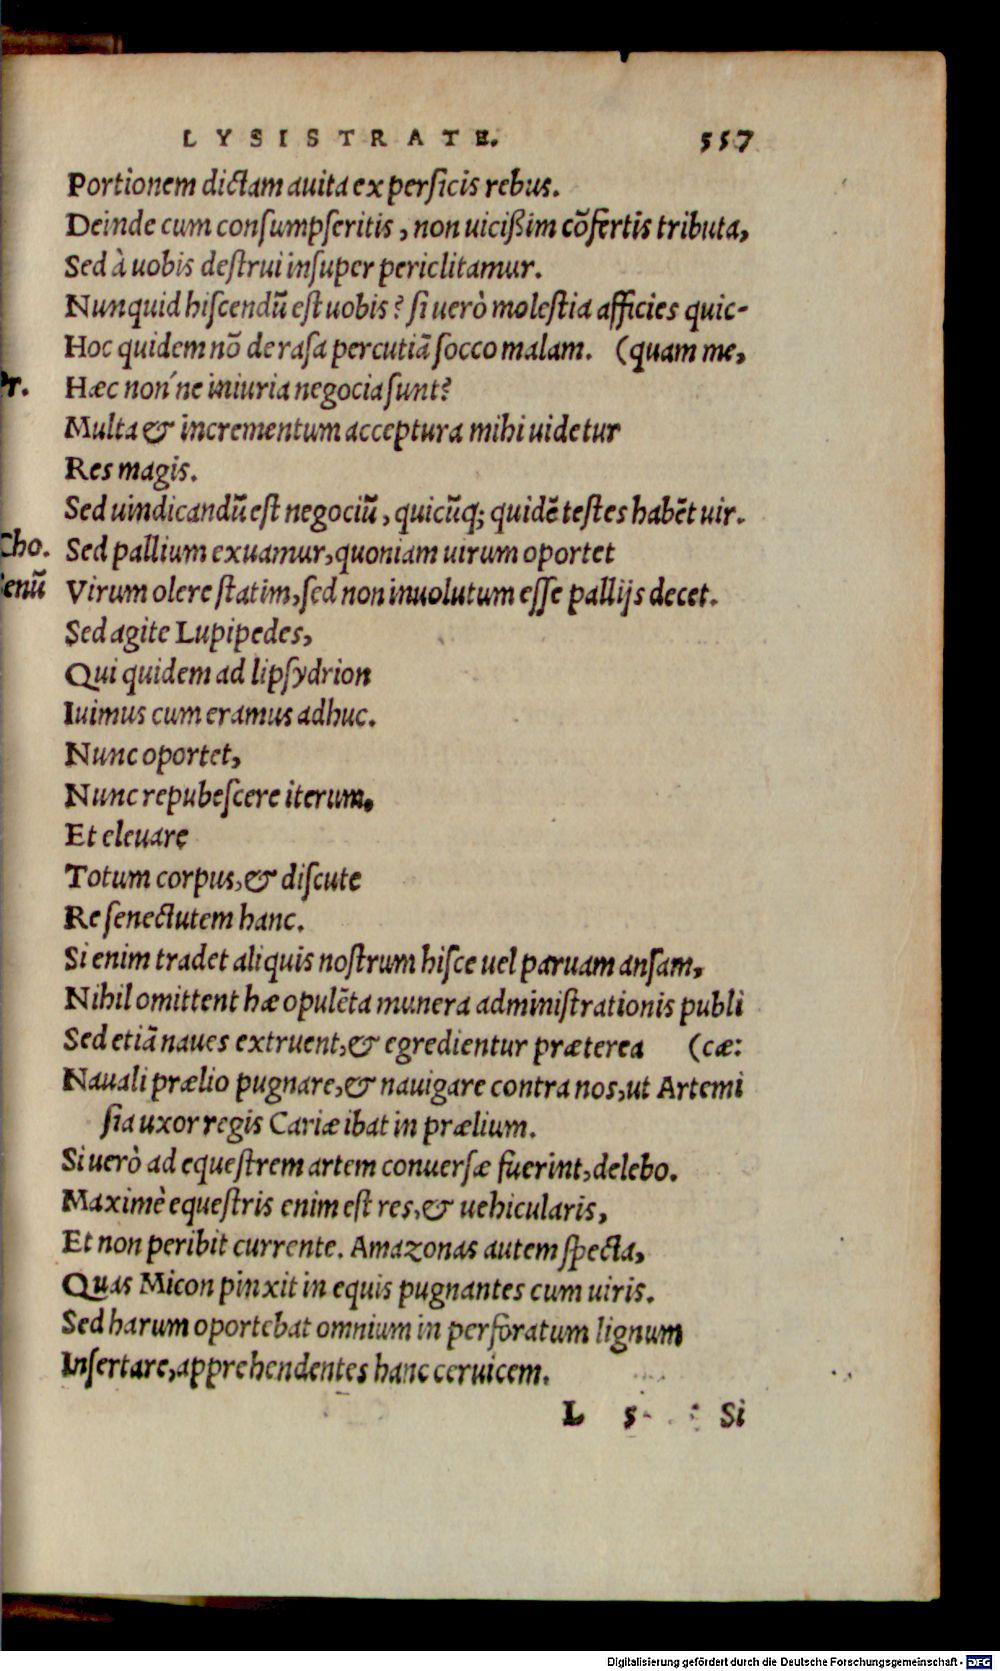 LYSISTRATE. 557
Portionem dictam auita ex persicis rebus.
Deinde cum consumpseritis, non uicißim cōfertis tributa,
Sed à uobis destrui insuper periclitamur.
Nunquid hiscendū est uobis? si uerò molestia afficies quic-
Hoc quidem nō derasa percutiā socco malam. (quam me,
Pr. Hæc non´ne iniuria negocia sunt?
Multa & incrementum acceptura mihi uidetur
Res magis.
Sed uindicandū est negociū, quicūq; quidē testes habēt uir.
Cho. Sed pallium exuamur, quoniam uirum oportet
senū Virum olere statim, sed non inuolutum esse pallijs decet.
Sed agite Lupipedes,
Qui quidem ad lipsydrion
Iuimus cum eramus adhuc.
Nunc oportet,
Nunc repubescere iterum,
Et eleuare
Totum corpus, & discute
Re senectutem hanc.
Si enim tradet aliquis nostrum hisce uel paruam ansam,
Nihil omittent hæ opulēta munera administrationis publi
Sed etiā naues extruent, & egredientur præterea (cæ:
Nauali prælio pugnare, & nauigare contra nos, ut Artemi
sia uxor regis Cariæ ibat in prælium.
Si uerò ad equestrem artem conuersæ fuerint, delebo.
Maximè equestris enim est res, & uehicularis,
Et non peribit currente. Amazonas autem specta,
Quas Micon pinxit in equis pugnantes cum uiris.
Sed harum oportebat omnium in perforatum lignum
Insertare, apprehendentes hanc ceruicem.
L 5 Si
Digitalisierung gefördert durch die Deutsche Forschungsgemeinschaft - DFG